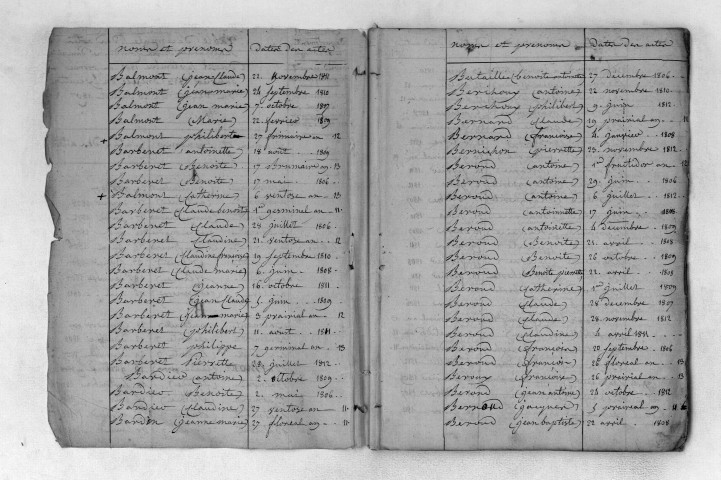 noms et prenoms Dates des actes
Balmont (jean claude) 22. Novembre 1811
Balmont (jean marie) 24 Septembre 1810
Balmont (jean marie) 7 octobre 1807
Balmont (Marie) 22 fevrier 1809
+ Balmont philiberte 27 frimaire an 12
Barberet antoinette 18 aout 1809
Barberet (Benoite) 17 Brumaire an 13
Barberet (Benoite) 17 mai 1806
+ Balmont Catherine 6 ventose an 13
Barberet (Claude benoite) 1er germinal an 11
Barberet (Claude) 28 juillet 1806
Barberet (Claudine) 21 ventose an 12
Barberet (Claudine) 19 Septembre 1810
Barberet (Claude marie) 6 juin 1808
Barberet (jeanne) 16 octobre 1811
Barberet (jean claude) juin 1809
Barberet (jean marie) 3 prairial an 12
Barberet (philibert) 11 aout 1811
Barberet philippe 7 germinal an 13
Barberet Pierrette 28 juillet 1812
Bardieu (antoine) 2 octobre 1809
Bardieu (Benoite) 2 mai 1806
Bardieu (Claudine) 27 ventose an 11
Bardin (jeanne marie) 27 floreal an 11
noms et prenoms Dates des actes
Bataille (benoite antoinette) 27 decembre 1806
Berchoux (antoine) 22 novembre 1810
Berchoux (philibert) 9 juin 1812
Bernard (Claude) 19 prairial an 11
Bernard (francoise) 4 janvier 1808
(pierrette) 23 novembre 1812
Beroud (antoine) 1er fructidor an 12
Beroud (antoine) 29 juin 1806
Beroud (antoine) 6 juillet 1812
Beroud (antoinette) 17 juin 1808
Beroud (antoinette) 4 decembre 1809
Beroud (Benoite) 21 avril 1808
Beroud (Benoite) 26 octobre 1809
Beroud (Benoite pierrette) 22 avril 1808
Beroud (Catherine) 1er juillet 1809
Beroud (Claude) 28 decembre 1807
Beroud (Claude) 28 novembre 1812
Beroud (Claudine) 4 avril 1811
Beroud (francois) 20 septembre 1806
Beroud (francois) 26 floreal an 13
Beroud (francoise) 26 prairial an 13
Beroud (jean antoine) 24 octobre 1812
(jacques) 5 prairial an 11
Beroud (jean baptiste) 22 avril 1808